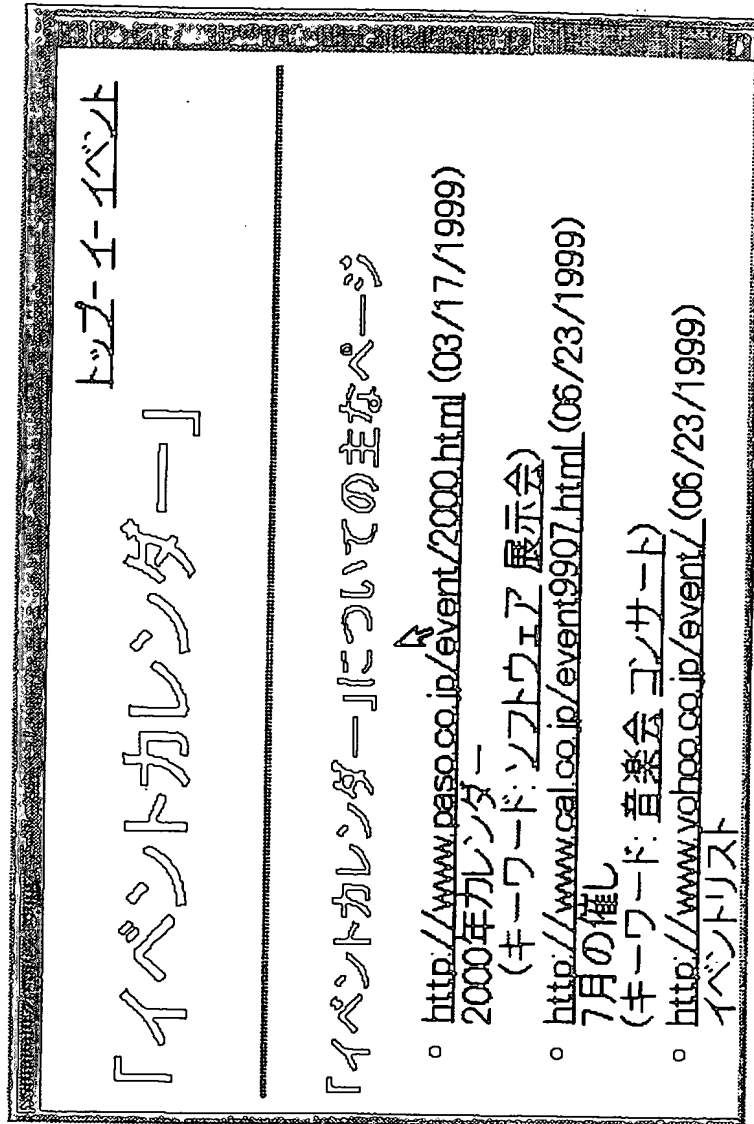 トップ - イ - イベント
「イベントカレンダー」
「イベントカレンダー」についての主なページ
○ http://www.paso.co.jp/event/2000.html (03/17/1999)
2000年カレンダー
(キーワード: ソフトウェア 展示会)
○ http://www.cal.co.jp/event9907.html (06/23/1999)
7月の催し
(キーワード: 音楽会 コンサート)
○ http://www.yohoo.co.jp/event/ (06/23/1999)
イベントリスト